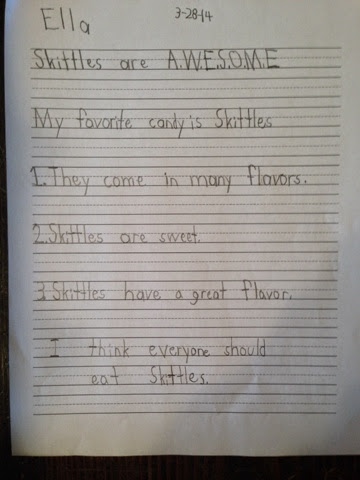 Ella
3-28-14
Skittles are A.W.E.S.O.M.E
My favorite candy is Skittles
1. They come in many flavors.
2. Skittles are sweet.
3. Skittles have a great flavor.
I think everyone should
eat Skittles.